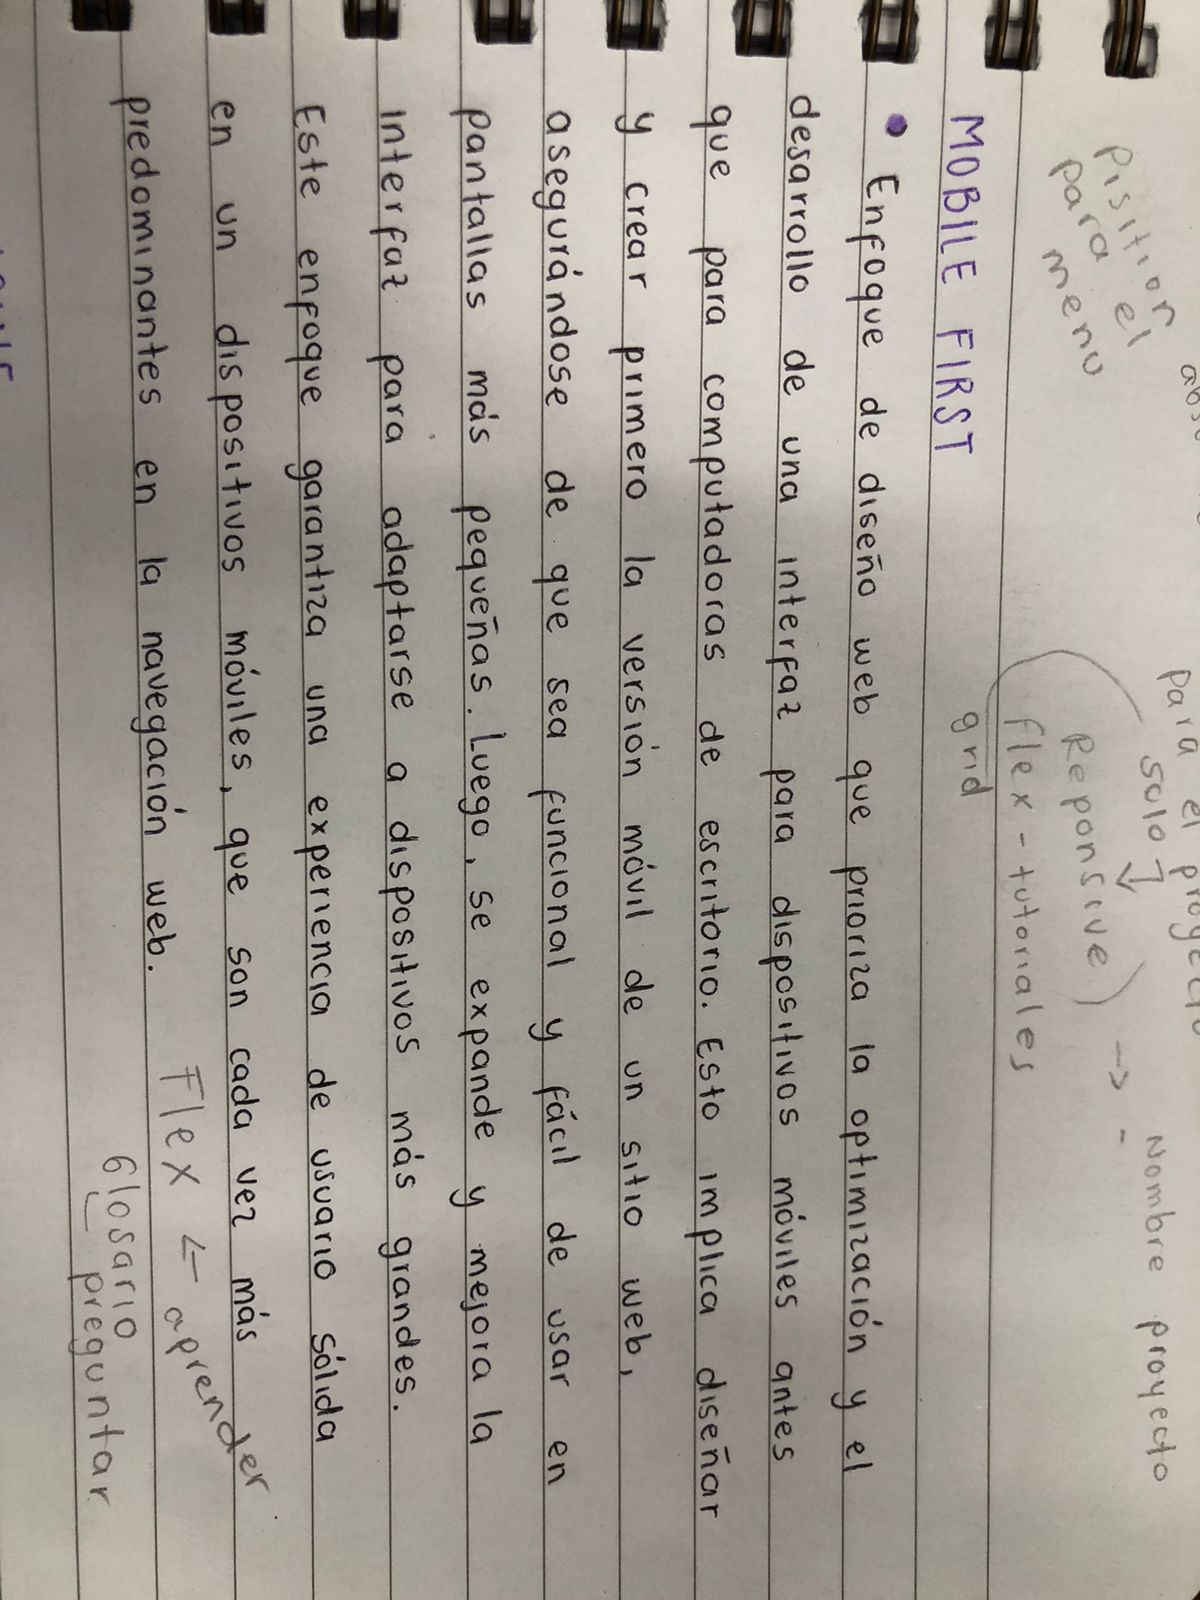 para el proyecto
solo
Nombre proyecto
Pisitior
para el
menu
Reponsive
flex - tutoriales
grid
MOBILE FIRST
• Enfoque de diseño web que prioriza la optimización y el
desarrollo de una interfaz para dispositivos móviles antes
que para computadoras de escritorio. Esto implica diseñar
y crear primero la versión móvil de un sitio web,
asegurándose de que sea funcional y fácil de usar en
pantallas más pequeñas. Luego, se expande y mejora la
interfaz para adaptarse a dispositivos más grandes.
Este enfoque garantiza una experiencia de usuario sólida
en un dispositivos móviles, que son cada vez más
predominantes en la navegación web.
Flex ← aprender
Glosario
preguntar